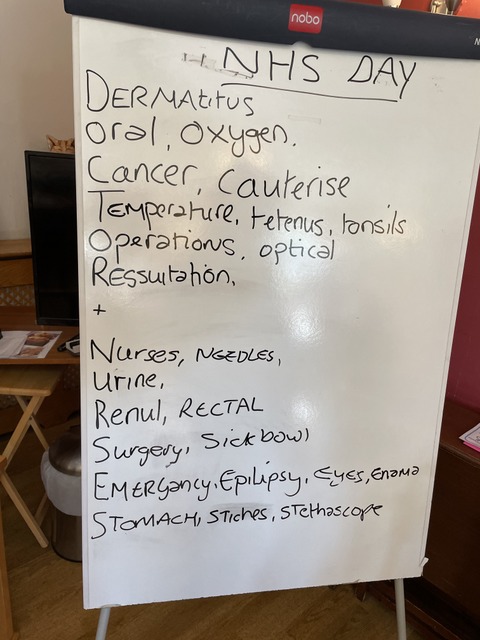 nobo
NHS DAY
DERMAtitus
Oral, Oxygen.
Cancer, Cauterise
Temperature, tetenus, tonsils
Operations, optical
Ressuitation,
+
Nurses, NEEDLES,
Urine,
Renul, RECTAL
Surgery, Sickbowl
EMERgancy, Epilipsy, EYES, Enama
STOMACH, STiches, STethascope